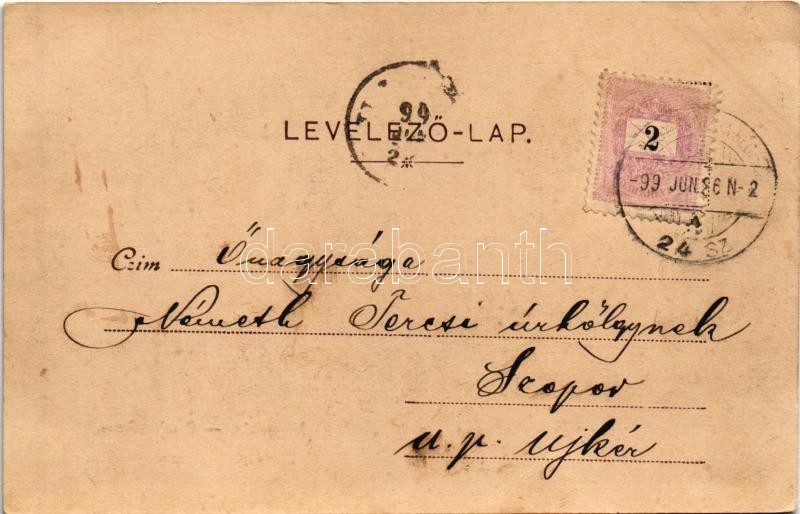 LEVELEZŐ-LAP.
99
2
-99 JUN. 26 N-2
24 SZ
darabanth
Czim Őnagysága
Németh Tercsi úrhölgynek
Szopor
u. p. Ujkér